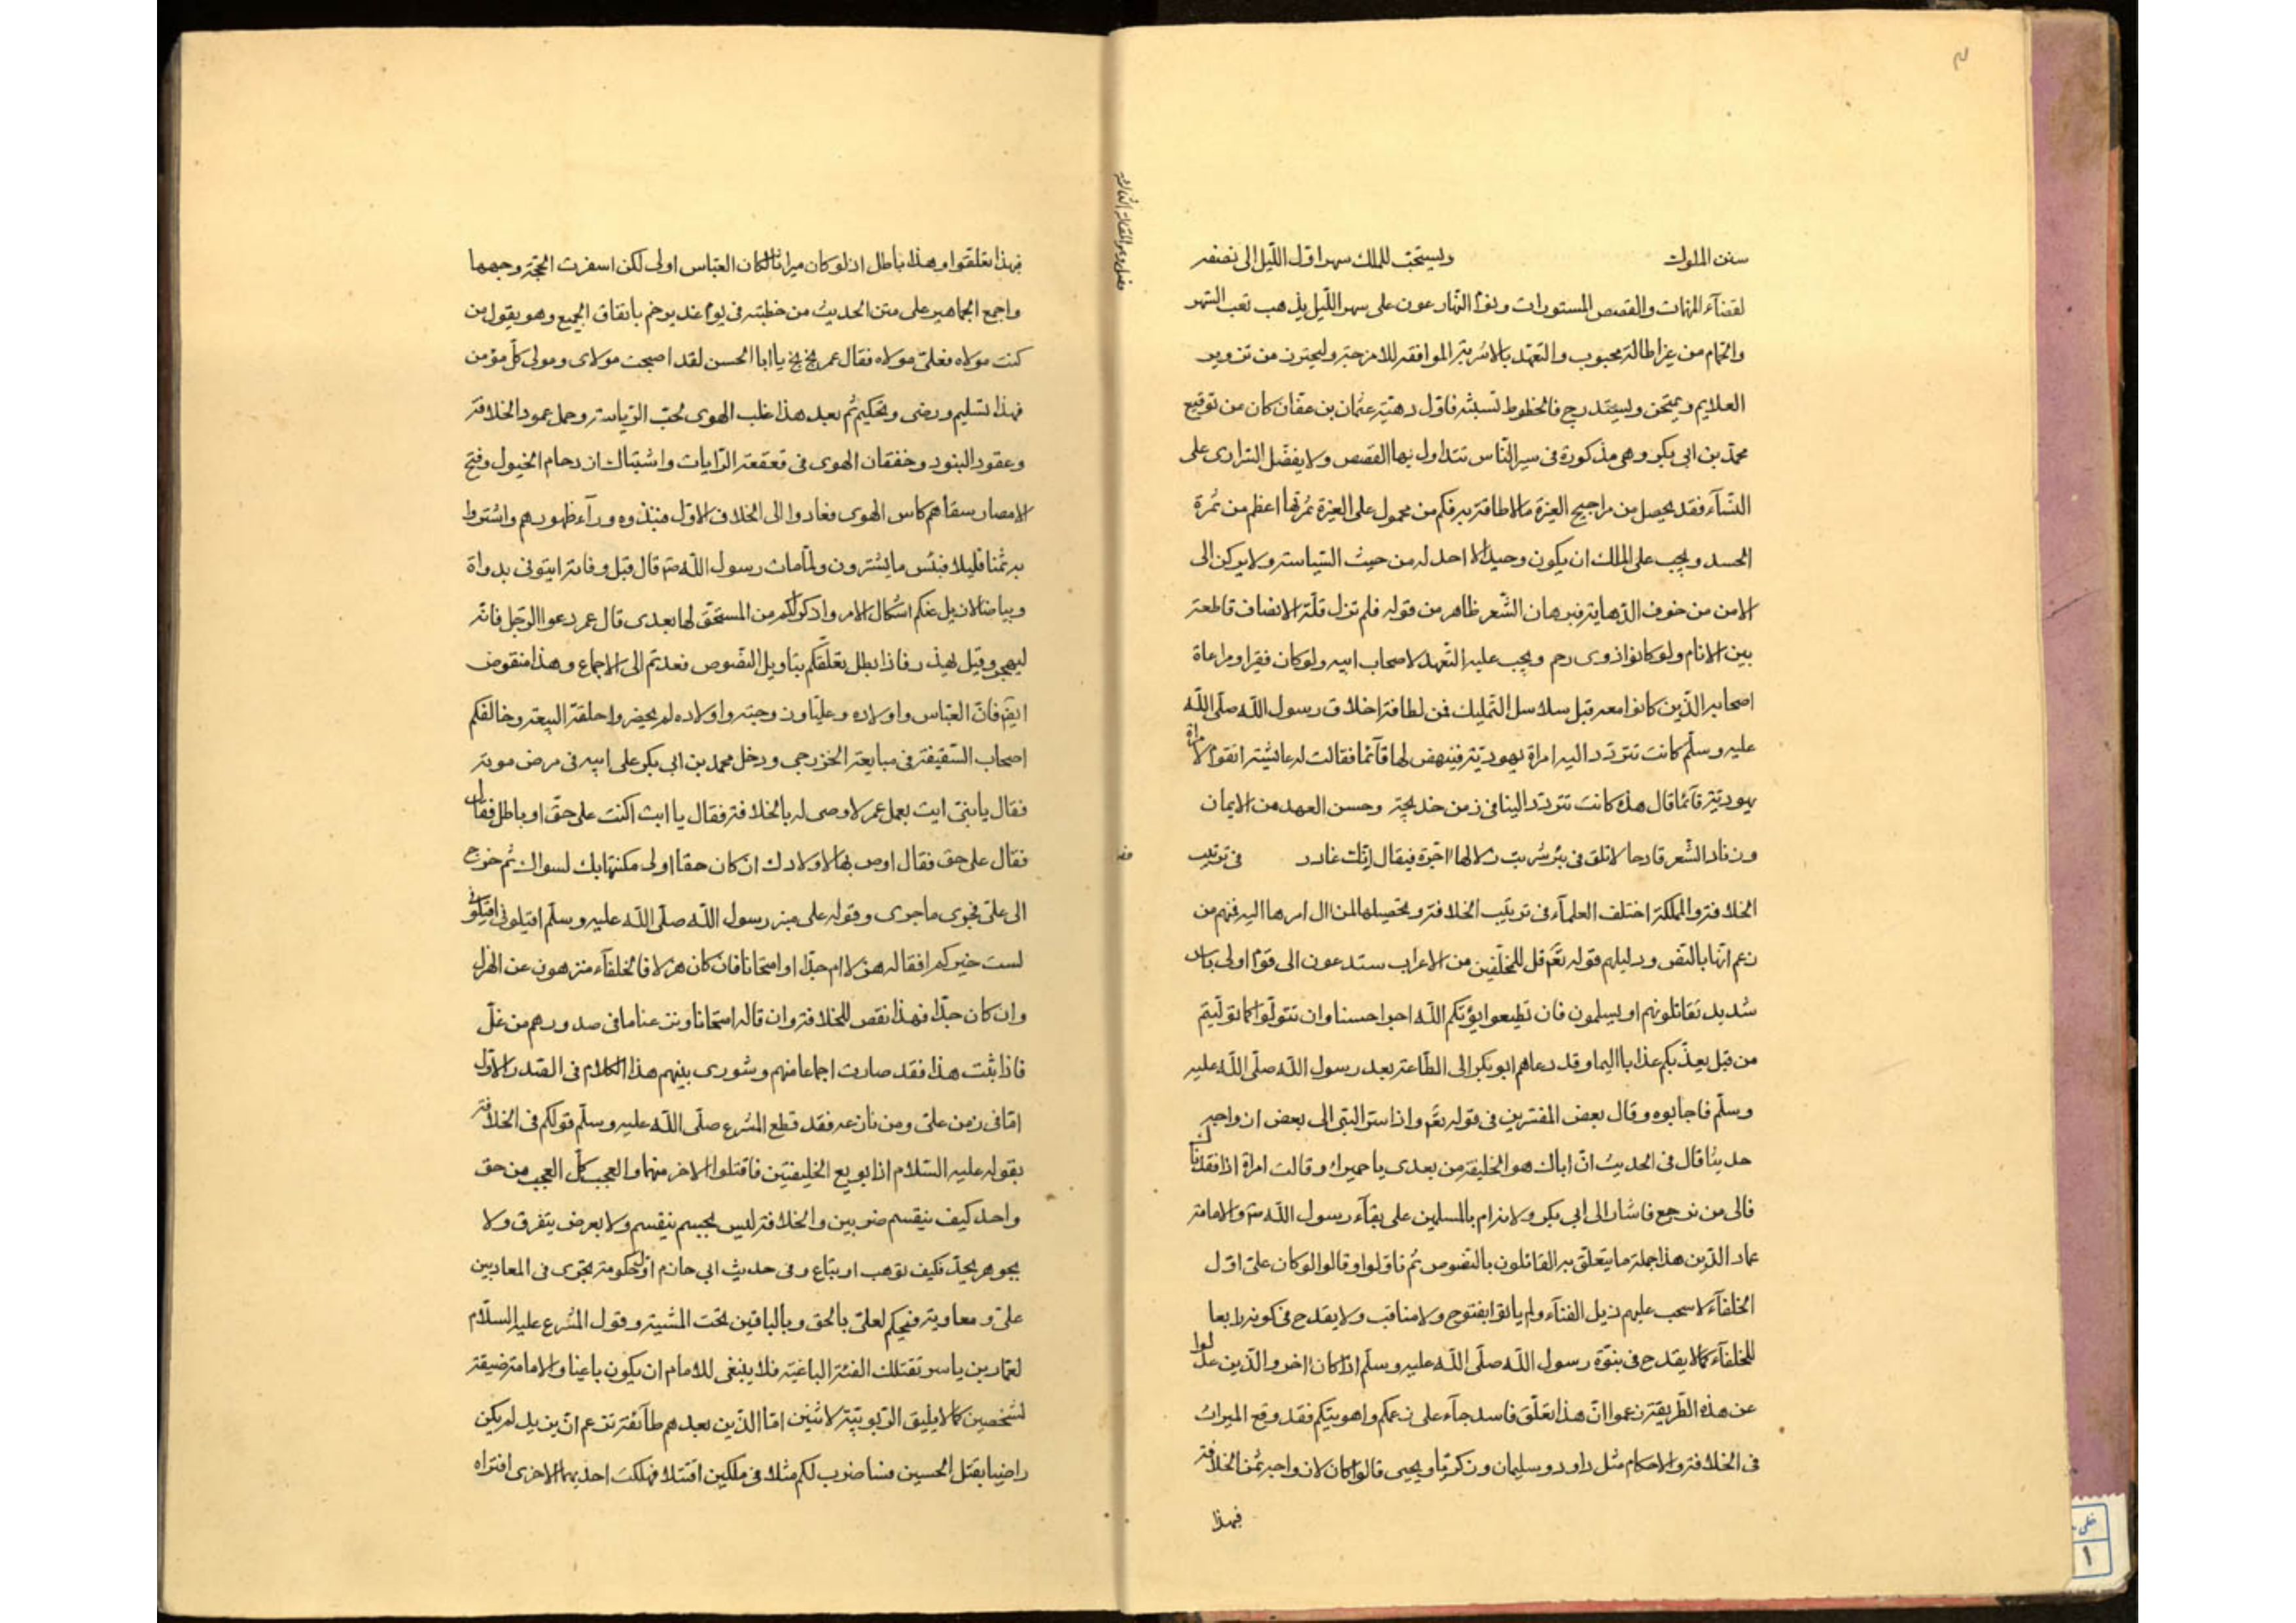 سنن الملوك ويستحب للملك سهر اول الليل الى نصفه
لقضآء المهمات والقصص المستورات ونوم النهار عون على سهر الليل يذهب تعب السهر
والحمام من غير اطالة محبوب والتعهد بالاشربة الموافقه للامزجة وليحترز من تزوير
العلايم ويمتحن وليستدرج فالخطوط تشبثه فاول دهتية عثمان بن عفان كان من توقيع
محمد بن ابى بكر وهى مذكورة فى سير الناس تتداول بها القصص ولا يفضل السرارى على
النسآء فقد يحصل من مراجيح الغيرة مالا طاقة به فكم من محمول على الغيرة ثمرتها اعظم من ثمرة
الحسد ويجب على الملك ان يكون وحيدا لا احد له من حيث السياسة ولا يركن الى
الامن من خوف الذهاية فبرهان الشعر ظاهر من قوله فلم تزل قلة الانصاف قاطعة
بين الانام ولو كانوا ذوى رحم ويجب عليه التعهد لاصحاب ابيه ولو كان فقيرا ومراعاة
اصحابه الذين كانوا معه قبل سلاسل التمليك فمن لطافة اخلاق رسول الله صلى الله
عليه وسلم كانت تتردد اليه امراة يهودية فينهض لها قآئما فقالت له عائشة اتقوم لامراة
يهودية قآئما قال هذه كانت تتردد الينا فى زمن خديجة وحسن العهد من الايمان
وزناد الشعر قادحا لا تلق فى بئر شربت زلالها اجرة فيقال انك غادر فى ترتيب
الخلافة والمملكة اختلف العلمآء فى ترتيب الخلافة وتحصيلها لمن ال امرها اليه فمنهم من
زعم انها بالنص ودليلهم قوله تعم قل للمخلفين من الاعراب ستدعون الى قوم اولى باس
شديد تقاتلونهم او يسلمون فان تطيعوا يؤتكم الله اجرا حسنا وان تتولوا كما توليتم
من قبل يعذبكم عذابا اليما وقد دعاهم ابو بكر الى الطاعة بعد رسول الله صلى الله عليه
وسلم فاجابوه وقال بعض المفسرين فى قوله تعم واذ اسر النبى الى بعض ازواجه
حديثا قال فى الحديث ان اباك هو الخليفة من بعدى يا حميراء وقالت امراة اذا فقدناك
فالى من نرجع فاشار الى ابى بكر ولانه ام بالمسلمين على بقآء رسول الله صم والامامة
عماد الدين هذا جملة ما يتعلق به القائلون بالنصوص ثم تاولوا وقالوا لو كان على اول
الخلفآء لا سحب عليهم ذيل الفنآء ولم ياتوا بفتوح ولا مناقب ولا يقدح فى كونه رابعا
للخلفآء كما لا يقدح فى نبوة رسول الله صلى الله عليه وسلم اذا كان اخر والذين عدلوا
عن هذه الطريقة زعموا ان هذا تعلق فاسد جآء على زعمكم واهويتكم فقد وقع الميراث
فى الخلافة والاحكام مثل داود وسليمان وزكريا ويحيى قالوا كان لازواجه ثمن الخلافة
فبهذا
فبهذا تعلقوا وهذا باطل اذ لو كان ميراثا لكان العباس اولى لكن اسفرت الحجة وجهها
واجمع الجماهير على متن الحديث من خطبته فى يوم غدير خم باتفاق الجميع وهو يقول من
كنت مولاه فعلى مولاه فقال عمر بخ بخ يا ابا الحسن لقد اصبحت مولاى ومولى كل مؤمن
فهذا تسليم ورضى وتحكيم ثم بعد هذا غلب الهوى لحب الرياسة وحمل عمود الخلافة
وعقود البنود وخفقان الهوى فى قعقعة الرايات واشتباك ازدحام الخيول وفتح
الامصار سقاهم كاس الهوى فعادوا الى الخلاف الاول فنبذوه ورآء ظهورهم واشتروا
به ثمنا قليلا فبئس ما يشترون ولما مات رسول الله صم قال قبل وفاته ايتونى بدواة
وبياض لازيل عنكم اشكال الامر واذكر لكم من المستحق لها بعدى قال عمر دعوا الرجل فانه
ليهجر وقيل يهذر فاذا بطل تعلقكم بتاويل النصوص فعدتم الى الاجماع وهذا منقوض
ايضا فان العباس واولاده وعليا وزوجته واولاده لم يحضروا حلقة البيعة وخالفكم
اصحاب السقيفة فى مبايعة الخزرجى ودخل محمد بن ابى بكر على ابيه فى مرض موته
فقال يا بنى ايت بعمك عمر لاوصى له بالخلافة فقال يا ابت اكنت على حق او باطل فقال
فقال على حق فقال اوص بها لاولادك ان كان حقا اولى مكنتها بك لسواك ثم خرج
الى على فجرى ما جرى وقوله على منبر رسول الله صلى الله عليه وسلم اقيلونى اقيلونى
لست خيركم افقاله هزلا ام جدا او امتحانا فان كان هزلا فالخلفآء منزهون عن الهزل
وان كان جدا فهذا نقص للخلافة وان قاله امتحانا ونزعنا ما فى صدورهم من غل
فاذا ثبت هذا فقد صارت اجماعا منهم وشورى بينهم هذا الكلام فى الصدر الاول
اما فى زمن على ومن نازعه فقد قطع الشرع صلى الله عليه وسلم قولكم فى الخلافة
بقوله عليه السلام اذا بويع الخليفتين فاقتلوا الاخر منهما والعجب كل العجب من حق
واحد كيف ينقسم ضربين والخلافة ليس بجسم ينقسم ولا بعرض يتفرق ولا
بجوهر يحد فكيف توهب او يتباع وفى حديث ابى حازم اول حكومة تجرى فى المعاد بين
على ومعاوية فيحكم لعلى بالحق وبالباقين تحت المشية وقول المشرع عليه السلام
لعمار بن ياسر تقتلك الفئة الباغية فلا ينبغى للامام ان يكون باغيا والامامة ضيقة
لشخصين كما لا يليق الربوبية لاثنين اما الذين بعدهم طآئفة تزعم ان يزيد لم يكن
راضيا بقتل الحسين فساضرب لكم مثلا فى ملكين اقتتلا فهلكت احديهما الاخرى افتراه